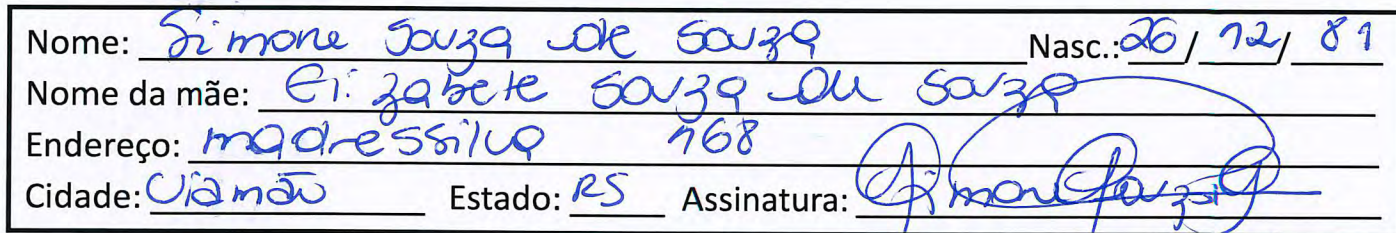 Nome: Simone Souza de Souza Nasc.: 26/ 12/ 81
Nome da mãe: Elizabete Souza de Souza
Endereço: madressilva 168
Cidade: Viamão Estado: RS Assinatura: Simone Souza